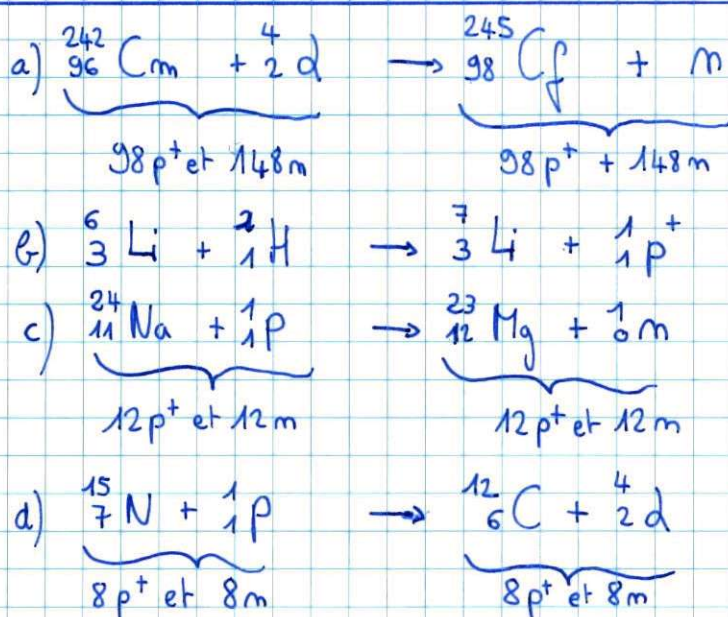 a) ²⁴²₉₆Cm + ⁴₂α → ²⁴⁵₉₈Cf + n
98p⁺ et 148n 98p⁺ + 148n
b) ⁶₃Li + ²₁H → ⁷₃Li + ¹₁p⁺
c) ²⁴₁₁Na + ¹₁p → ²³₁₂Mg + ¹₀n
12p⁺ et 12n 12p⁺ et 12n
d) ¹⁵₇N + ¹₁p → ¹²₆C + ⁴₂α
8p⁺ et 8n 8p⁺ et 8n